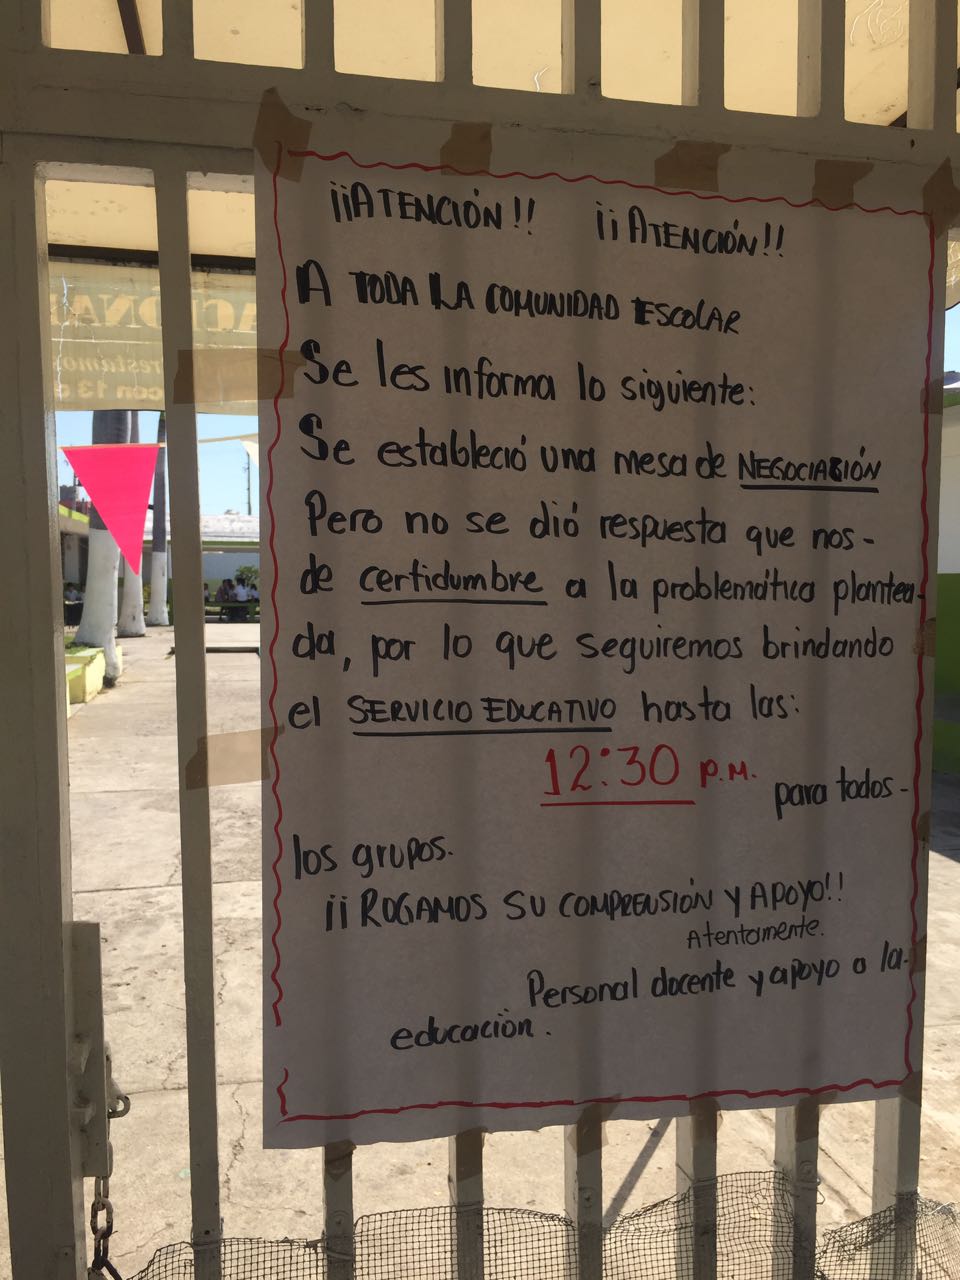 ¡¡ATENCIÓN!! ¡¡ATENCIÓN!!
A TODA LA COMUNIDAD ESCOLAR
Se les informa lo siguiente:
Se estableció una mesa de NEGOCIACIÓN
Pero no se dió respuesta que nos-
de certidumbre a la problemática plantea-
da, por lo que seguiremos brindando
el SERVICIO EDUCATIVO hasta las:
12:30 P.M.
para todos-
los grupos.
¡¡ROGAMOS SU COMPRENSIÓN Y APOYO!!
Atentamente.
Personal docente y apoyo a la-
educación.